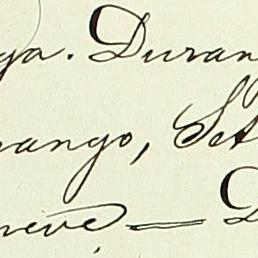 ya. Duran
rango, Set
neve — D